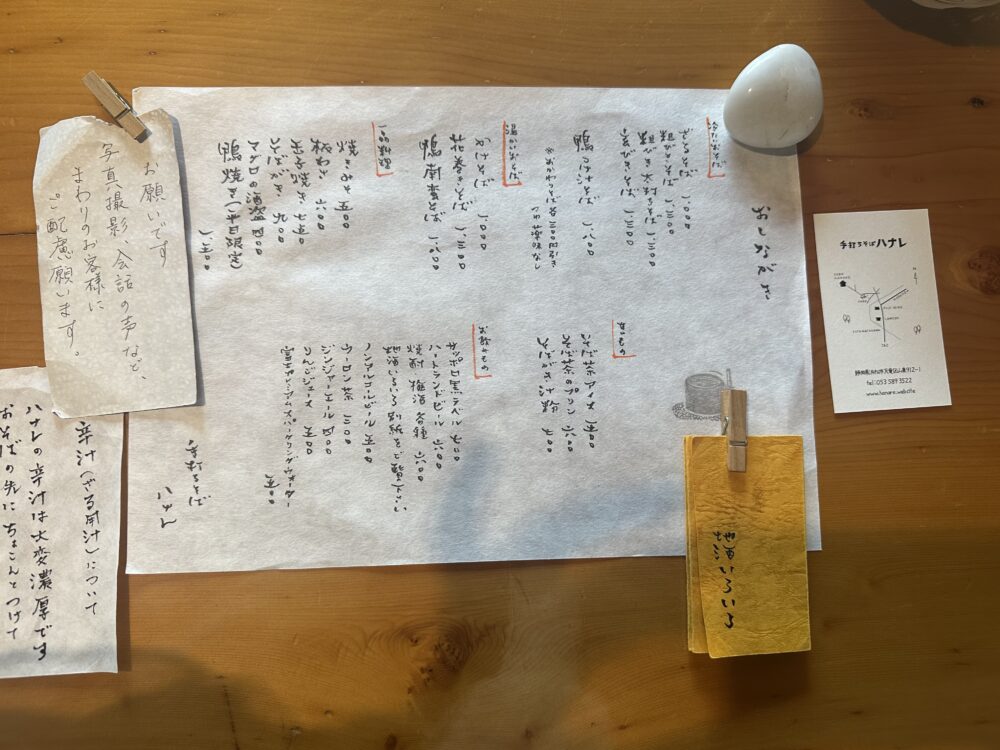 おしながき
冷たいおそば
ざるそば 一、〇〇〇
粗びきそば 一、三〇〇
粗びき太打ちそば 一、三〇〇
一、三〇〇
鴨つけそば 一、八〇〇
※おかわりそば各三〇〇円引き
つゆ・薬味なし
温かいおそば
かけそば 一、〇〇〇
花巻きそば 一、三〇〇
鴨南蛮そば 一、八〇〇
一品料理
焼きみそ 五〇〇
板わさ 六〇〇
玉子焼き 七五〇
そばがき 九〇〇
マグロの酒盗 四〇〇
鴨焼き(半日限定)
一、五〇〇
甘いもの
そば茶アイス 五〇〇
そば茶のプリン 六〇〇
そばがき汁粉
お飲みもの
サッポロ黒ラベル 七〇〇
ハートランドビール 六〇〇
焼酎 梅酒 各種 六〇〇
地酒いろいろ 別紙をご覧下さい
ノンアルコールビール 五〇〇
ウーロン茶 三〇〇
ジンジャーエール 四〇〇
りんごジュース 五〇〇
富士プレミアムスパークリングウォーター
五〇〇
手打ちそば
ハナレ
お願いです
写真撮影、会話の声など、
まわりのお客様に
ご配慮願います。
辛汁(ざる用汁)について
ハナレの辛汁は大変濃厚です
おそばの先にちょこんとつけて
地酒いろいろ
手打ちそばハナレ
tel:053 589 3522
www.hanare.website